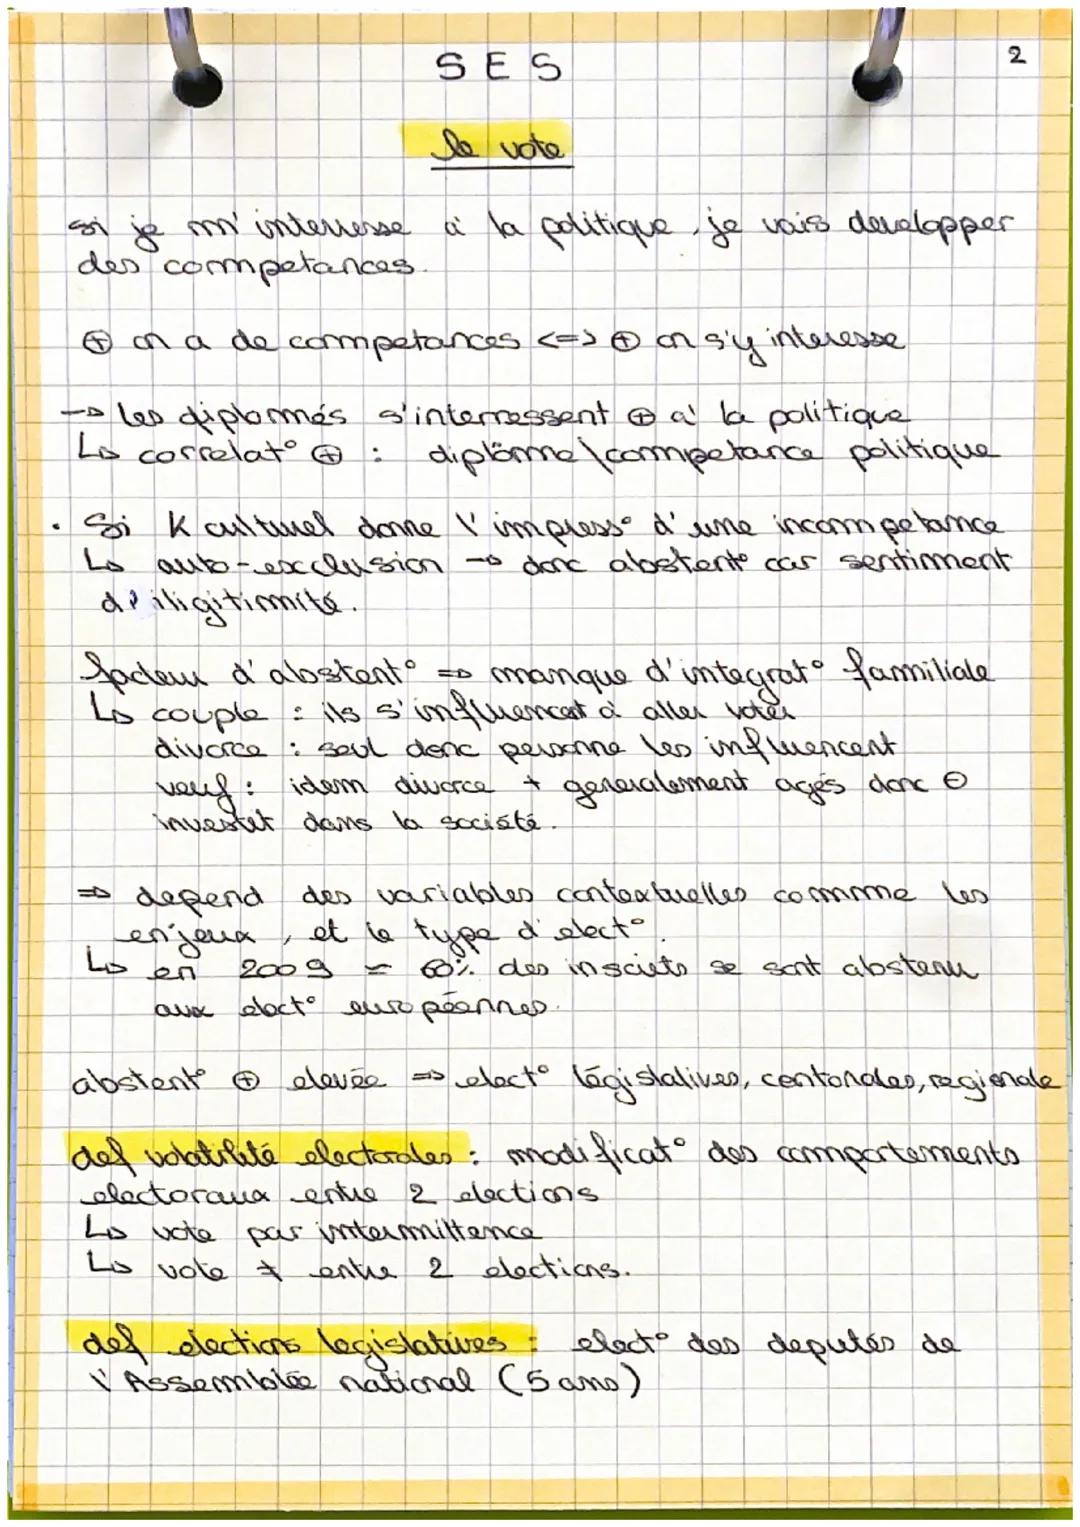 SES
2
le vote
si je m'interresse à la politique, je vais developper
des competances.
⊕ on a de competances <=> ⊕ on s'y interesse
→ les diplomés s'interressent ⊕ à la politique
↳ correlat° ⊕ : diplôme \ competance politique
• Si K culturel donne l'impress° d'une incompetance
↳ auto-exclusion → donc abstent° car sentiment
d'iligitimité.
facteur d'abstent° => manque d'integrat° familiale
↳ couple : ils s'influencent à aller voter
divorce : seul donc personne les influencent
veuf : idem divorce + generalement agés donc ⊖
investit dans la société.
=> depend des variables contextuelles comme les
enjeux, et le type d'elect°.
↳ en 2009 = 60% des inscrits se sont abstenu
aux elect° européennes.
abstent° ⊕ elevée => elect° législatives, cantonales, regionale
def volatilité electorales : modificat° des comportements
electoraux entre 2 elections
↳ vote par intermittence
↳ vote ≠ entre 2 elections.
def elections legislatives : elect° des deputés de
l'Assemblée national (5 ans)